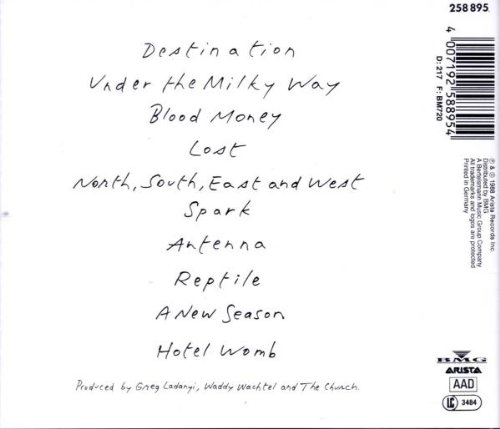 258 895
Destination
Under the Milky Way
Blood Money
Lost
North, South, East and West
Spark
Antenna
Reptile
A New Season
Hotel Womb
Produced by Greg Ladanyi, Waddy Wachtel and The Church.
4 007192 588954
D: 217 F: BM720
℗ & © 1988 Arista Records Inc.
Distributed by BMG
A Bertelsmann Music Group Company
All trademarks and logos are protected
Printed in Germany
BMG
ARISTA
AAD
LC 3484